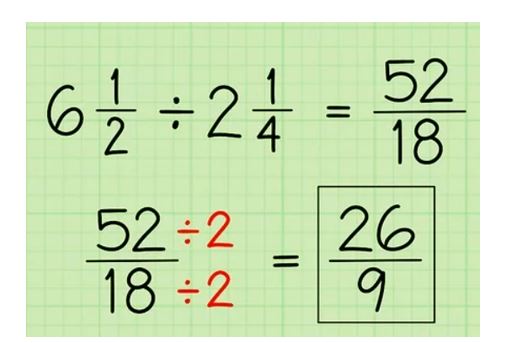 6 1/2 ÷ 2 1/4 = 52/18
52 ÷2 / 18 ÷2 = 26/9